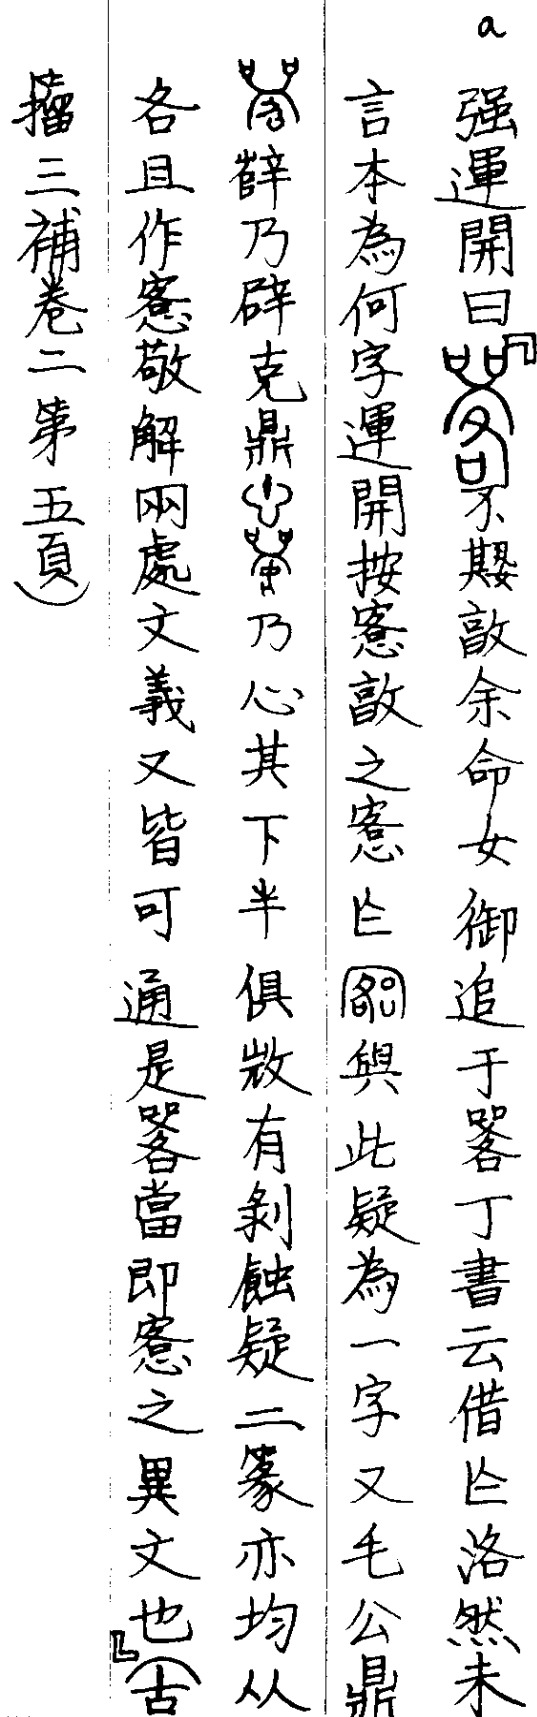 a
强運開曰『不𡢁敵余命女御追于䇓丁書云借㐁洛然未
言本為何字運開按愙敵之愙㐁與此疑為一字又毛公鼎
薛乃辟克鼎乃心其下半俱敚有剝蝕疑二篆亦均从
各且作愙敬解兩處文義又皆可通是當即愙之異文也』（古
籀三補卷二第五頁）